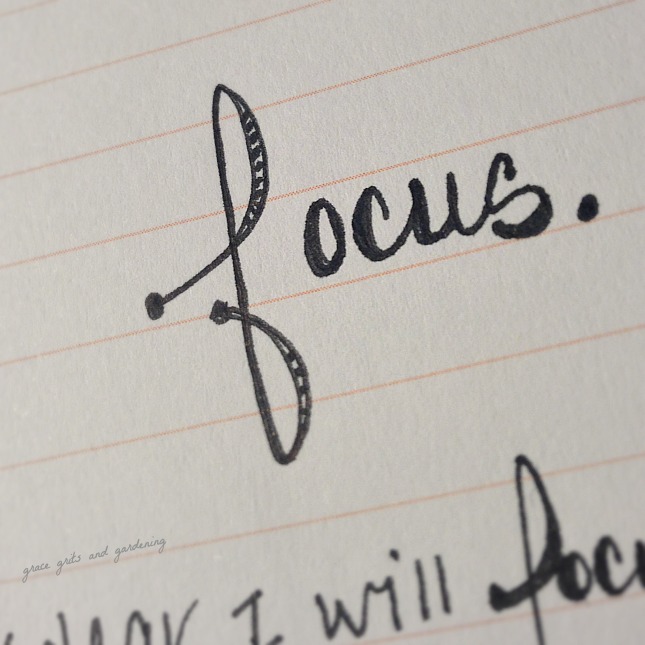 focus.
grace grits and gardening
year I will focu